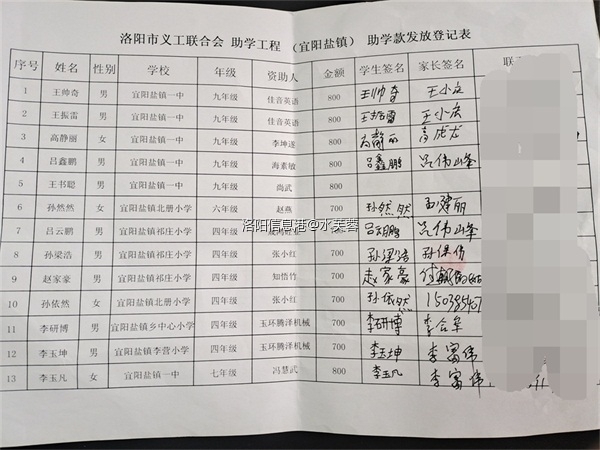 洛阳市义工联合会 助学工程 （宜阳盐镇） 助学款发放登记表
序号 姓名 性别 学校 年级 资助人 金额 学生签名 家长签名 联
1 王帅奇 男 宜阳盐镇一中 九年级 佳音英语 800 王帅奇
2 王振雷 男 宜阳盐镇一中 九年级 佳音英语 800 王振雷
3 高静丽 女 宜阳盐镇一中 九年级 李坤遂 800 高静丽
4 吕鑫鹏 男 宜阳盐镇一中 九年级 海素敏 800 吕鑫鹏 吕伟峰
5 王书聪 男 宜阳盐镇一中 九年级 尚武 800
6 孙然然 女 宜阳盐镇北册小学 六年级 赵燕 700 孙然然
7 吕云鹏 男 宜阳盐镇祁庄小学 四年级 700 吕云鹏 吕伟峰
洛阳信息港@水芙蓉
8 孙梁浩 男 宜阳盐镇祁庄小学 四年级 张小红 700 孙梁浩 孙保伟
9 赵家豪 男 宜阳盐镇祁庄小学 四年级 知悟竹 700 赵家豪
10 孙依然 女 宜阳盐镇北册小学 四年级 张小红 700 孙依然
11 李研博 男 宜阳盐镇乡中心小学 四年级 玉环腾泽机械 700 李研博
12 李玉坤 男 宜阳盐镇李营小学 四年级 玉环腾泽机械 700 李玉坤 李富伟
13 李玉凡 女 宜阳盐镇一中 七年级 冯慧武 800 李玉凡 李富伟